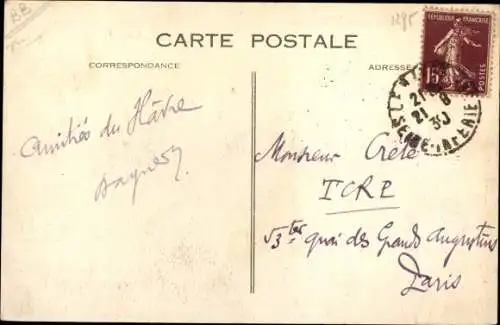 BB
1295
CARTE POSTALE
CORRESPONDANCE
ADRESSE
REPUBLIQUE FRANÇAISE
15c
POSTES
21
21 8
30
SEINE-INFERIEURE
Amitiés du Hâvre
Monsieur Crété
ICRE
53ter quai des Grands Augustins
Paris